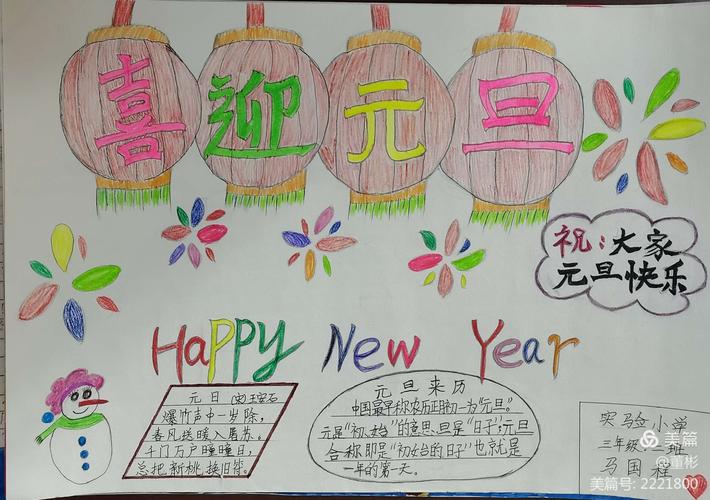 喜迎元旦
祝：大家
元旦快乐
Happy New Year
元日 (宋)王安石
爆竹声中一岁除，
春风送暖入屠苏。
千门万户曈曈日，
总把新桃换旧符。
元旦来历
中国最早称农历正月初一为“元旦”。
元是“初、始”的意思，旦是“日子”，元旦
合称即是“初始的日子”也就是
一年的第一天。
实验小学
三年级二班
马国程
美篇
@董彬
美篇号: 2221800